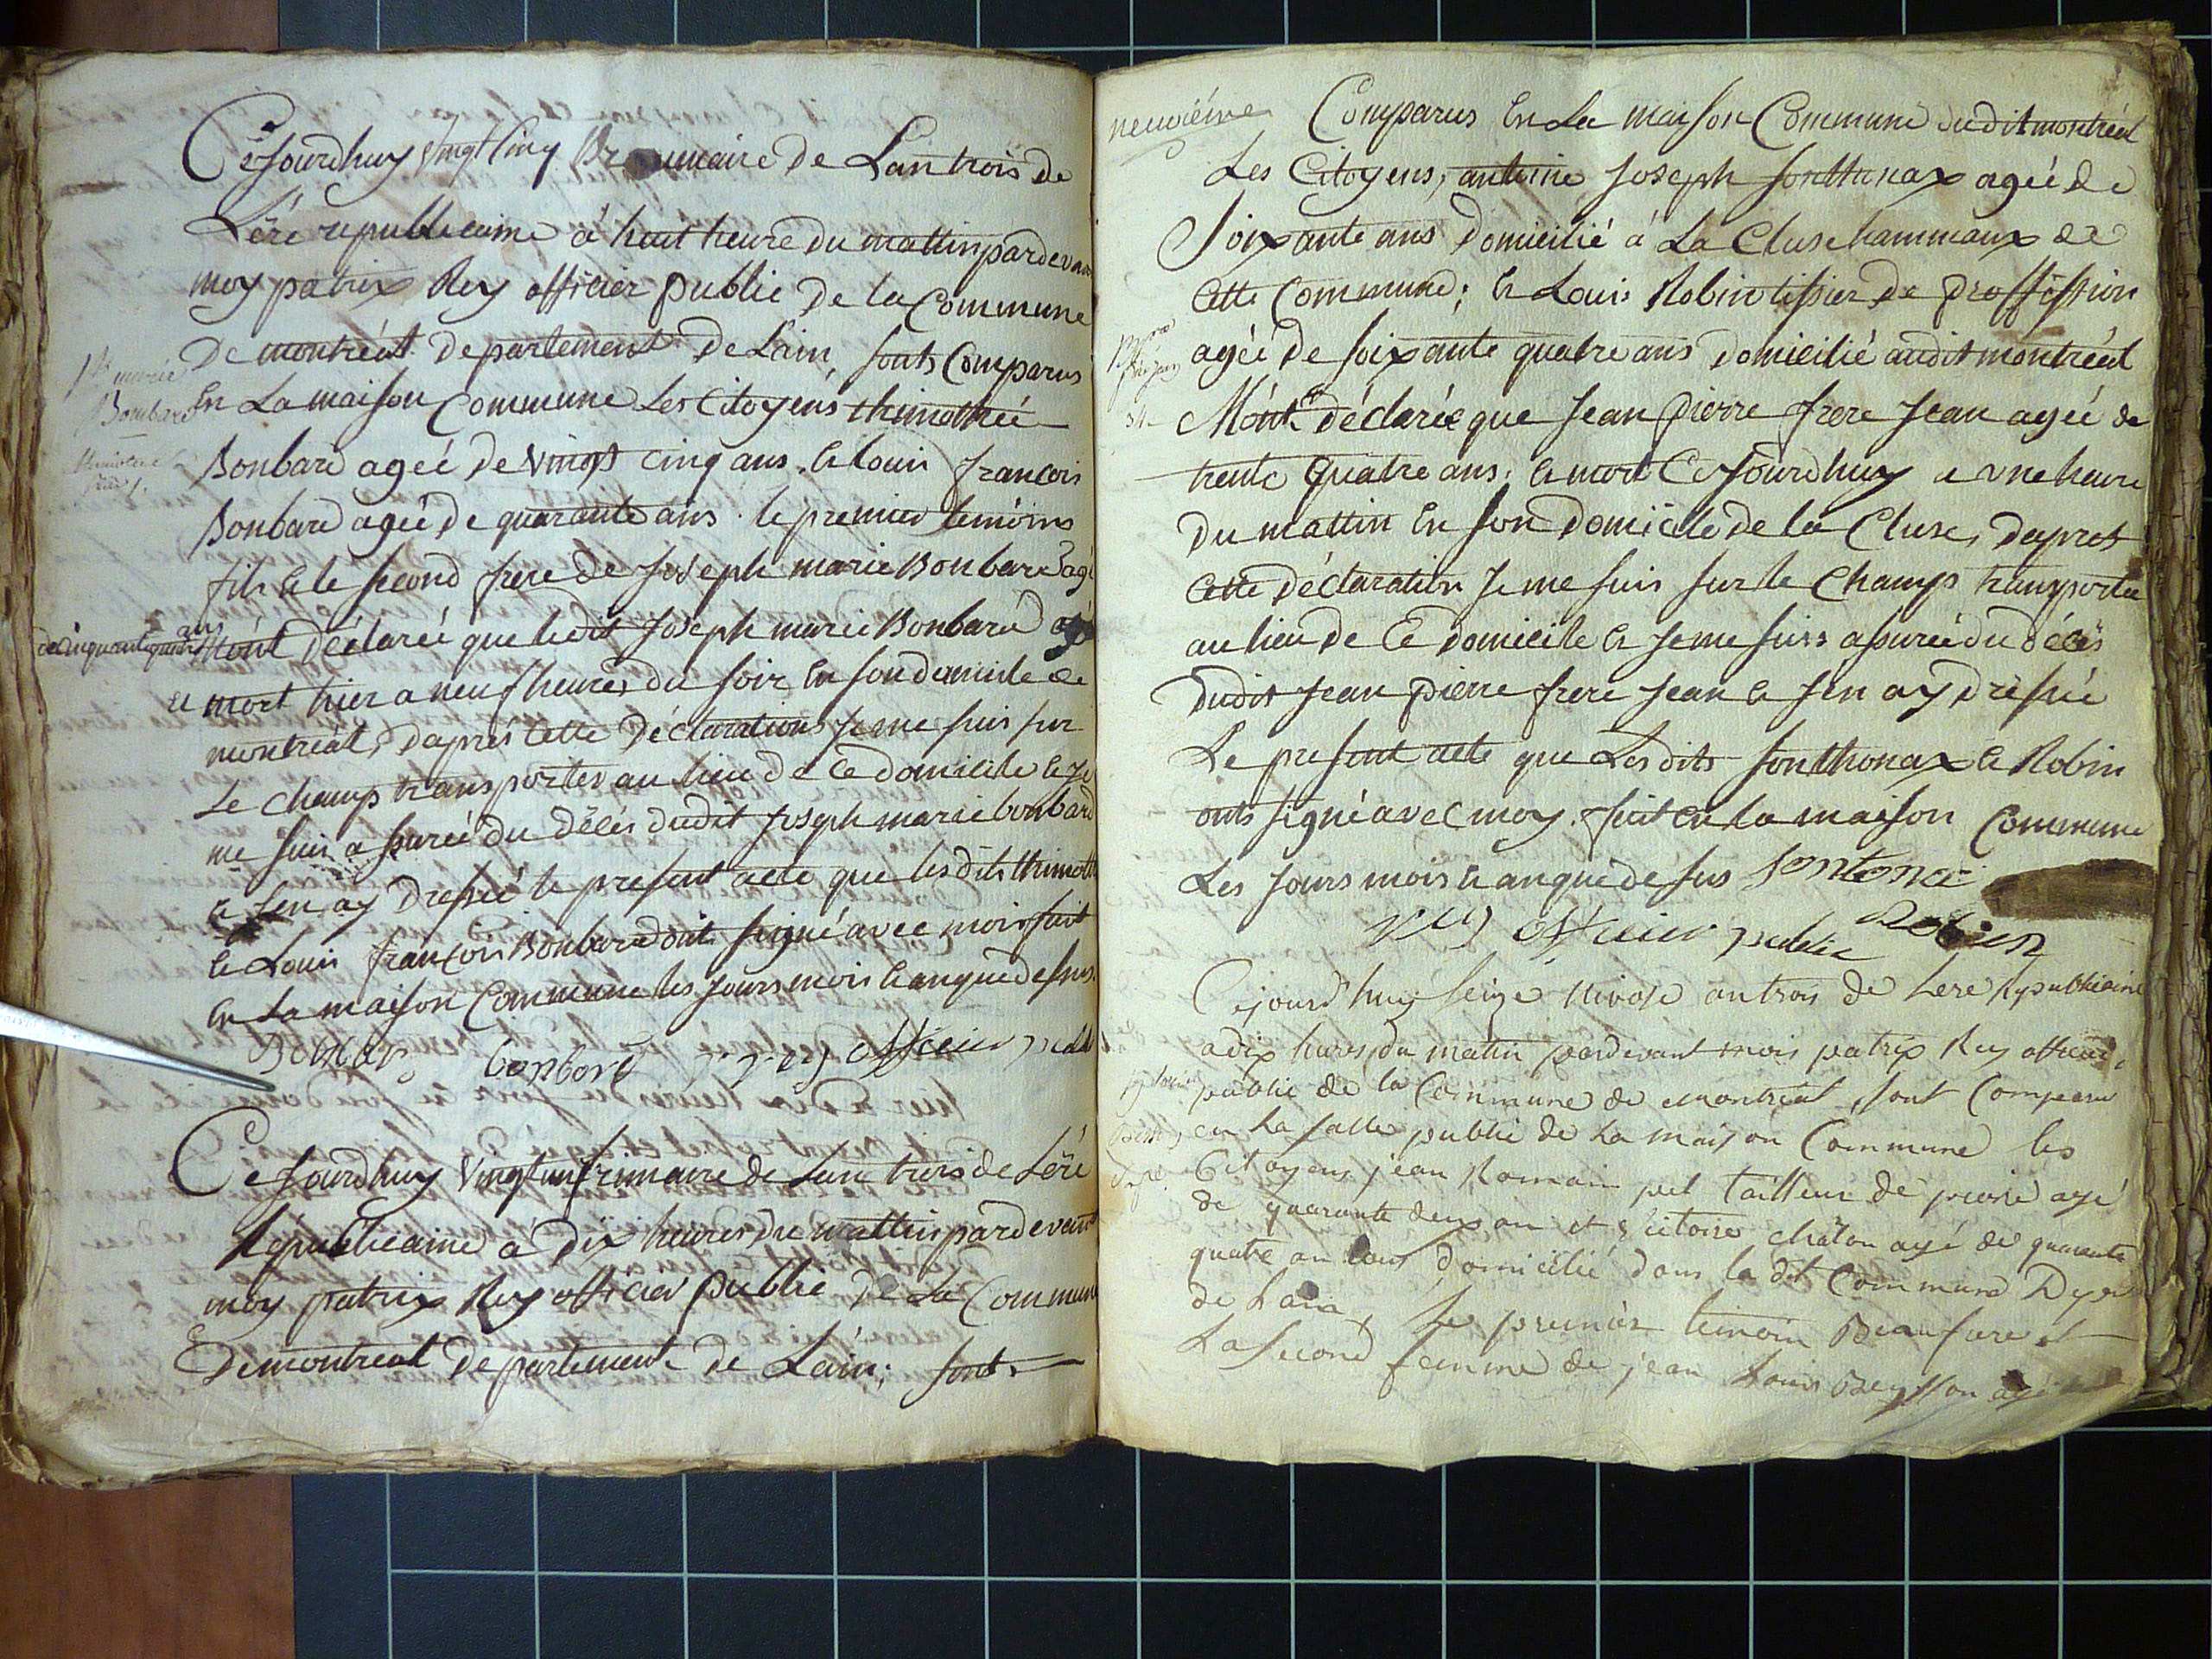 Cejourdhuy vingt cinq Brumaire de Lan trois de
Lére republicaine à huit heure du mattin pardevan
moy patrix Rey officier public De la Commune
De montréal departement De Lain, sonts Comparus
En La maison Commune Les Citoyens thimothée
Bonbard ageé de vingt cinq ans. Et louis francois
Bonbard ageé de quarante ans. le premier temoins
fils Et le second frere de Joseph marie Bonbard agé
de cinquante quatre ans
M'ont déclareé que ledit Joseph marie Bonbard
et mort hier a neuf heures du soir En son domicile de
montréal, daprés Cette Déclarations Je me suis sur
Le champs transporter au lieu de Ce domicile Et Je
me suis assureé du décés dudit Joseph marie bonbard
Et Jen ay dresseé le present acte que les dits thimoth
Et Louis francois Bonbard ont signé avec moi fait
En La maison Commune les jours mois Et an que desus.
Bonbard bonbard rey officier publi
Jph marie
Bombard
Ce Jourdhuy vingt un frimaire de Lan trois de Lére
Républicaine a dix heures du mattin pardevant
moy patrix Rey officier public De La Commune
De montreal departement de Lain; sont
neuviéme
Comparus En La maison Commune dudit montréal
Les Citoyens, antoine Joseph sonthonax ageé de
Soixante ans Domicilié à La Cluse hammaux de
Cette Commune; Et Louis Robin tissier de proffession
ageé De soixante quatre ans Domicilié audit montréal
M'ont déclareé que Jean pierre frere Jean ageé de
trente quatre ans. Et mort Ce Jourdhuy a une heure
Du mattin En son Domicile de la Cluse, daprés
Cette Déclaration Je me suis sur le Champs transporter
au lieu de Ce Domicile Et Je me suis assureé du décés
Dudit Jean pierre frere Jean Et Jen ay dresseé
Le present acte que Lesdits sonthonax Et Robin
onts signé avec moy. fait En la maison Commune
Les Jours mois Et an que desus Sontona
rey officier public Robin
34
Cejourd'huy seize Nivose an trois de Lere republicaine
a dix hures du matin pardevant mois patrix Rey officier
public de la Commune de montréal, sont Comparu
en la salle public de La maison Commune les
Citoyens jean Romain tailleur de pierre agé
de quarante deux an et victoire chaton agé de quarante
quatre an tous domicilié dans la dit Commune
de Lain, Le premier temoin Beaufrere et
La second femme de jean Louis agé